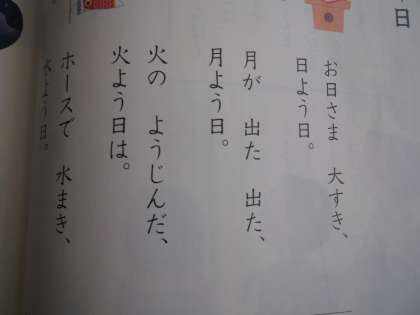 日
お日さま　大すき、
日よう日。
月が　出た　出た、
月よう日。
火の　ようじんだ、
火よう日は。
ホースで　水まき、
水よう日。